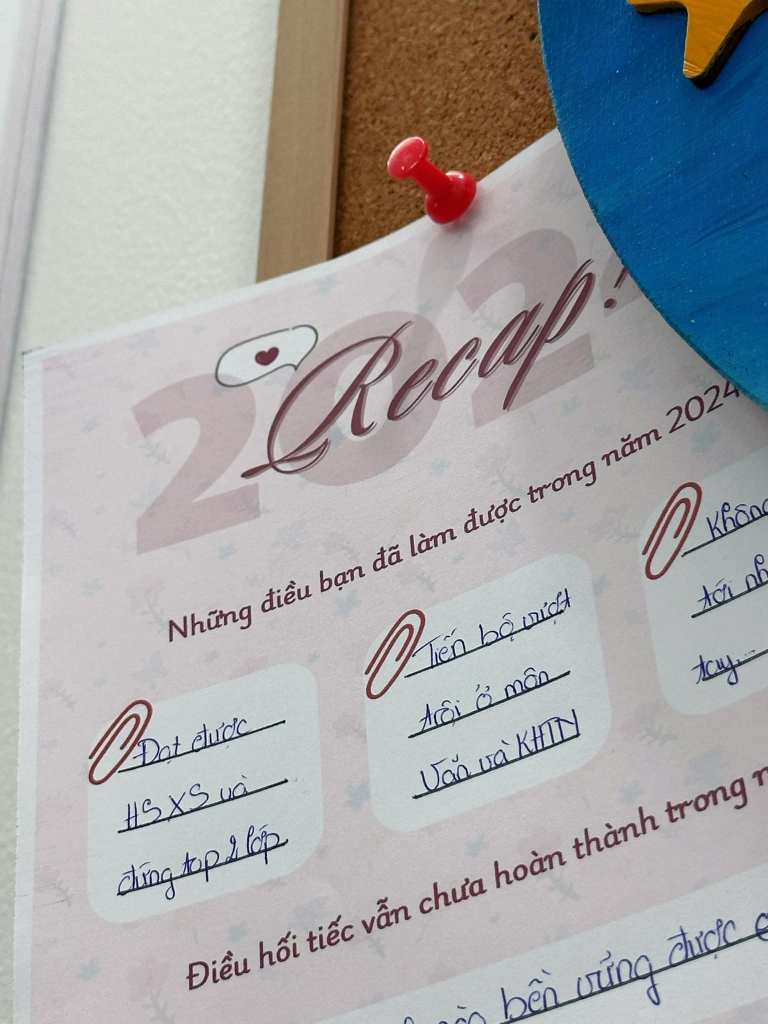 202
Recap!
Những điều bạn đã làm được trong năm 2024
Đạt được
HSXS và
đứng top 2 lớp
Tiến bộ vượt
trội ở môn
Văn và KHTN
Không
tới
tay...
Điều hối tiếc vẫn chưa hoàn thành trong
bền vững được